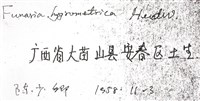 Funaria hygrometrica Hedw.
广西省大苗山县安春区土生
1958.11-3